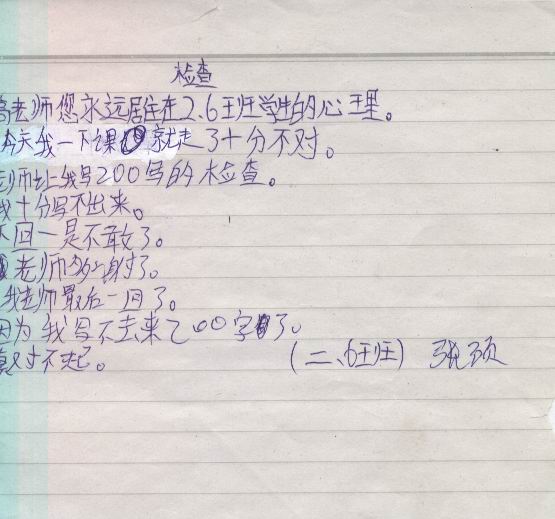 检查
高老师您永远居住在2.6班学生的心里。
今天我一下课就走了十分不对。
老师让我写200字的检查。
我十分写不出来。
下回一是不敢了。
老师多谢了。
我老师最后一回了。
因为我写不去来200字了。
对不起。
(二、6班)